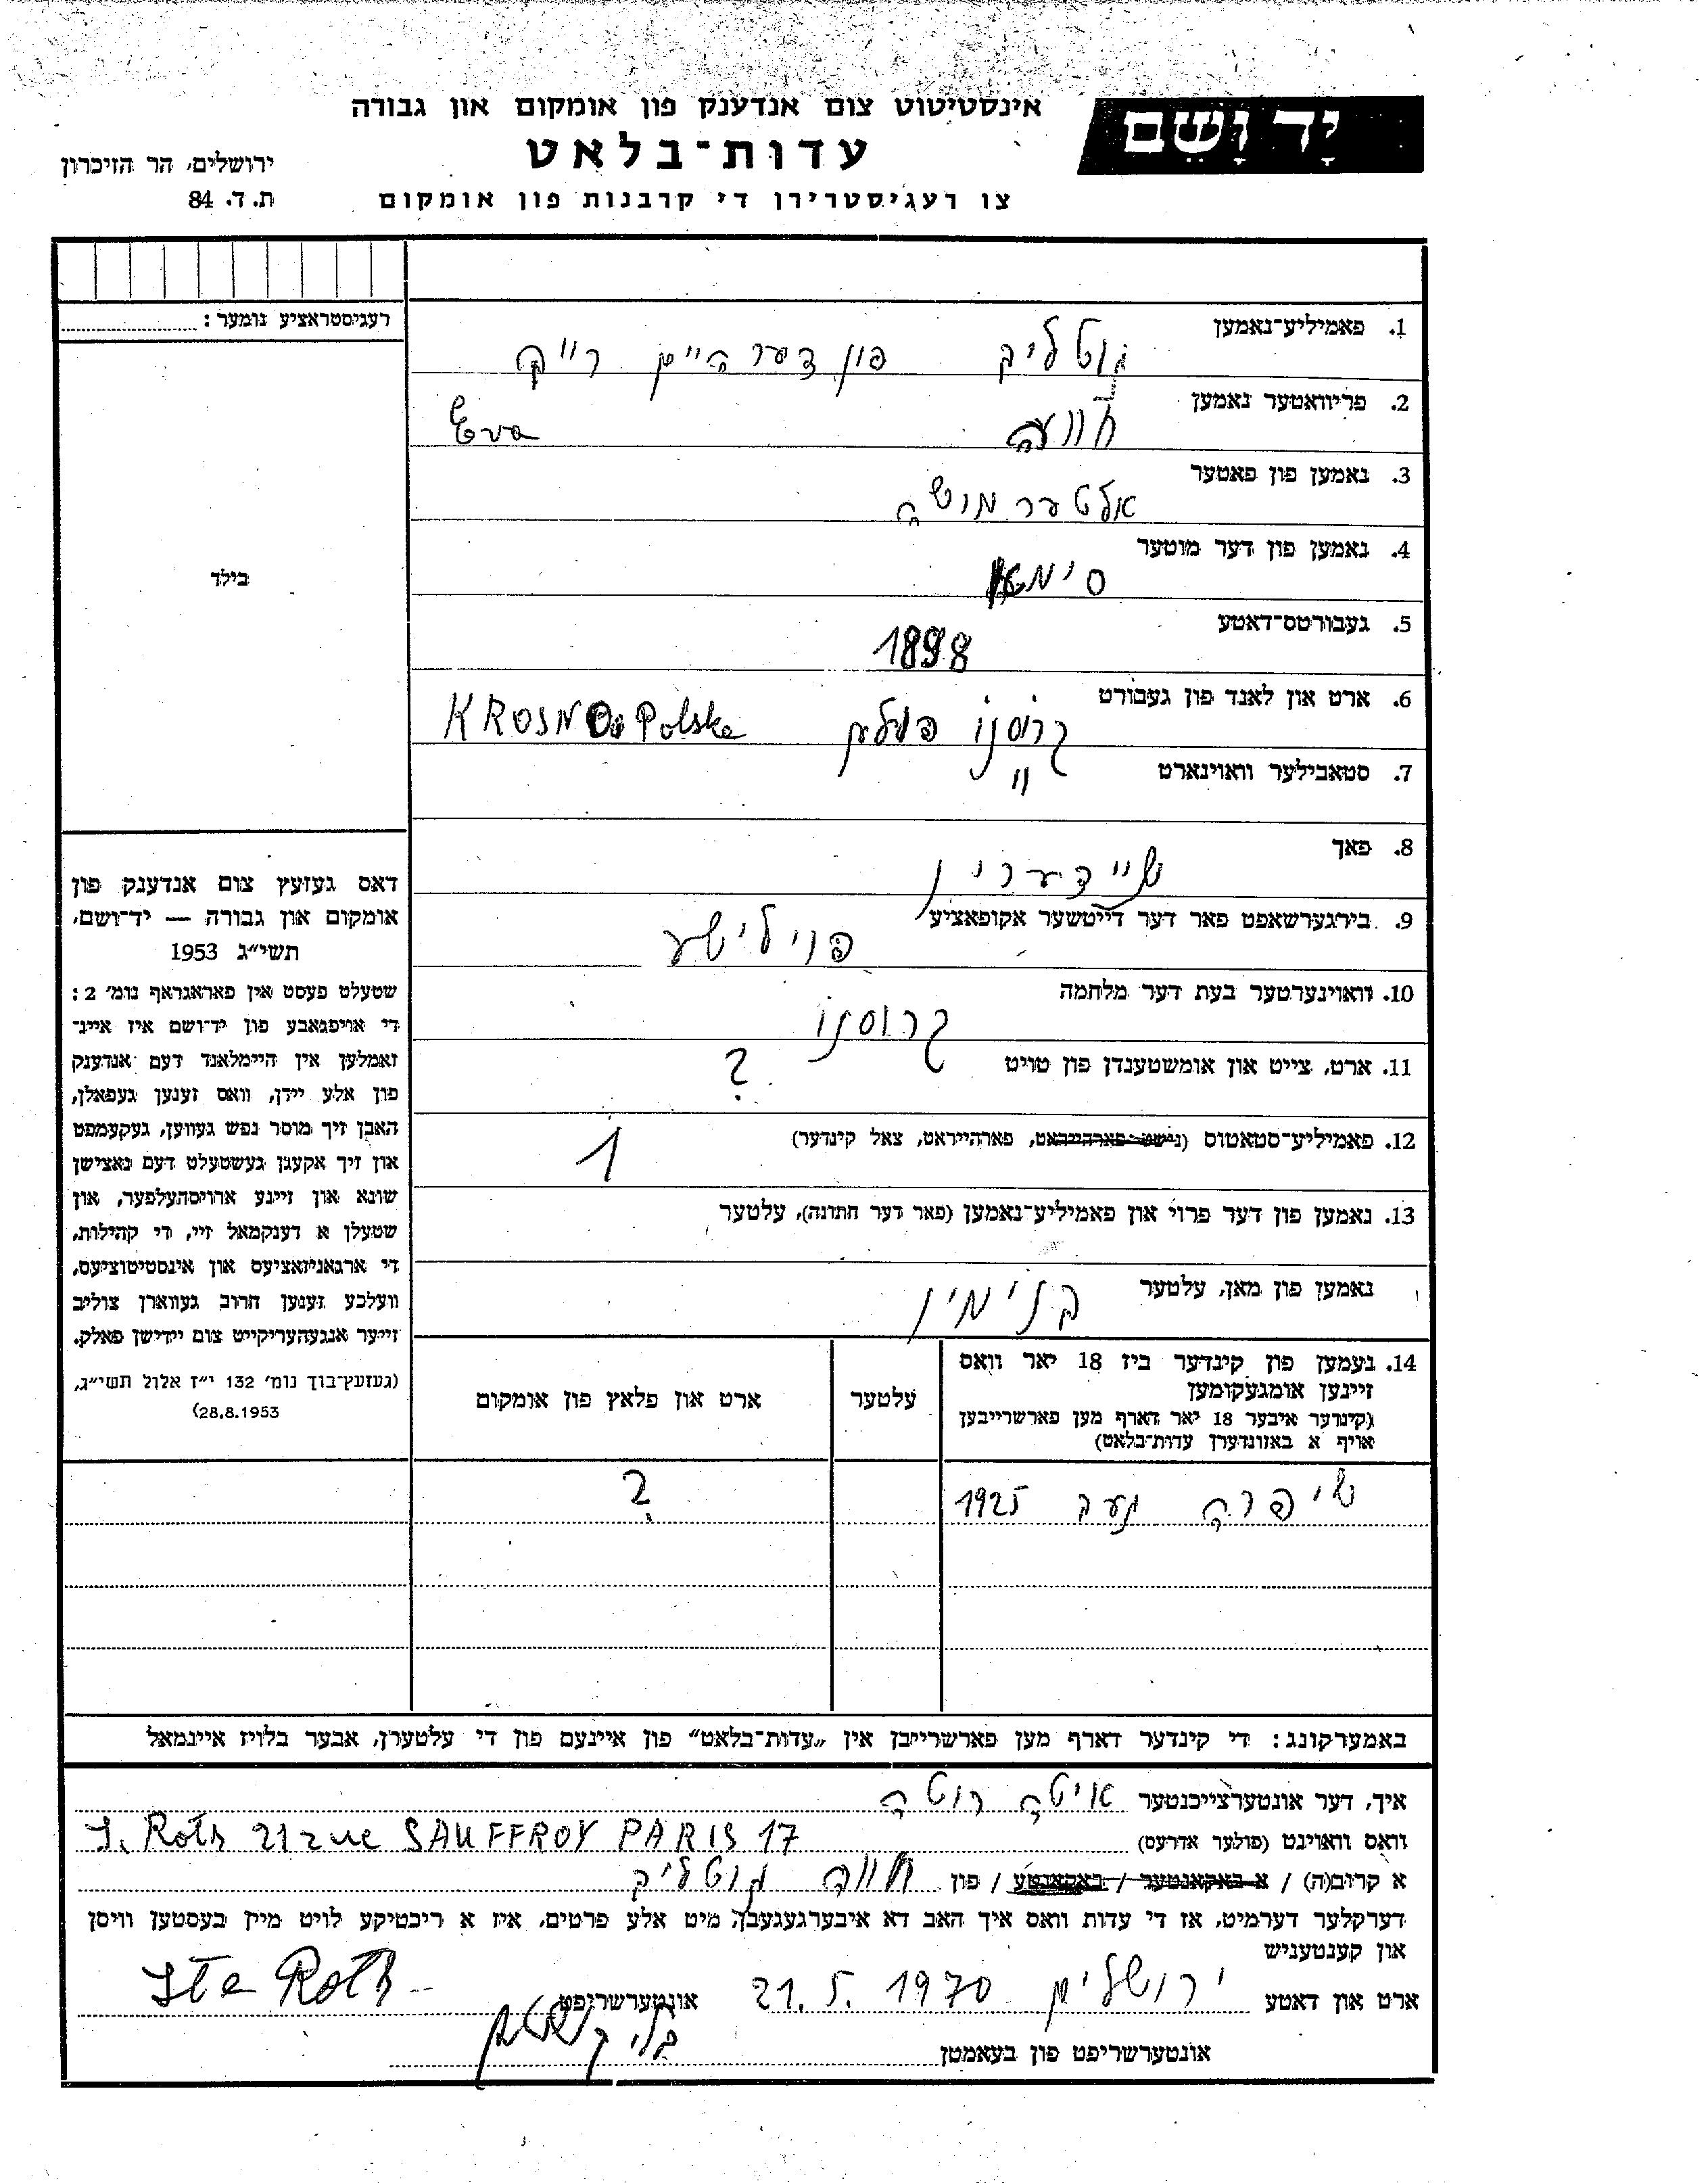 יָד וָשֵׁם
אינסטיטוט צום אנדענק פון אומקום און גבורה
עדות־בלאט
צו רעגיסטרירן די קרבנות פון אומקום
ירושלים, הר הזיכרון
ת. ד. 84
רעגיסטראציע נומער:
בילד
דאס געזעץ צום אנדענק פון
אומקום און גבורה — יד־ושם,
תשי״ג 1953
שטעלט פעסט אין פאראגראף נומ׳ 2:
די אויפגאבע פון יד־ושם איז איינ־
זאמלען אין היימלאנד דעם אנדענק
פון אלע יידן, וואס זענען געפאלן,
האבן זיך מוסר נפש געווען, געקעמפט
און זיך אקעגן געשטעלט דעם נאצישן
שונא און זיינע ארויסהעלפער, און
שטעלן א דענקמאל זיי, די קהילות,
די ארגאניזאציעס און אינסטיטוציעס,
וועלכע זענען חרוב געווארן צוליב
זייער אנגעהעריקייט צום יידישן פאלק.
(געזעץ־בוך נומ׳ 132 י״ז אלול תשי״ג,
28.8.1953)
1. פאמיליע־נאמען
גוטליב פון דער היים רייך
2. פריוואטער נאמען
חווה Eva
3. נאמען פון פאטער
אלטער מושה
4. נאמען פון דער מוטער
סימא
5. געבורטס־דאטע
1898
6. ארט און לאנד פון געבורט
קרוסנו פולען KROSNO Polska
7. סטאבילער וואוינארט
״
8. פאך
שניידערין
9. בירגערשאפט פאר דער דייטשער אקופאציע
פוילישע
10. וואוינערטער בעת דער מלחמה
קרוסנו
11. ארט, צייט און אומשטענדן פון טויט
?
12. פאמיליע־סטאטוס (נישט־פארהייראט, פארהייראט, צאל קינדער)
1
13. נאמען פון דער פרוי און פאמיליע־נאמען (פאר דער חתונה), עלטער
נאמען פון מאן, עלטער בנימין
14. נעמען פון קינדער ביז 18 יאר וואס
זיינען אומגעקומען
(קינדער איבער 18 יאר דארף מען פארשרייבן
אויף א באזונדערן עדות־בלאט)
עלטער
ארט און פלאץ פון אומקום
שיפרה געב 1925 ?
באמערקונג: די קינדער דארף מען פארשרייבן אין „עדות־בלאט״ פון איינעם פון די עלטערן, אבער בלויז איינמאל
איך, דער אונטערצייכנטער איטה רוטה
וואס וואוינט (פולער אדרעס) I. Roth 21 rue SAUFFROY PARIS 17
א קרוב(ה) / א באקאנטער / באקאנטע / פון חווה גוטליב
דערקלער דערמיט, אז די עדות וואס איך האב דא איבערגעגעבן, מיט אלע פרטים, איז א ריכטיקע לויט מיין בעסטען וויסן
און קענטעניש
ארט און דאטע ירושלים 21.5.1970 אונטערשריפט Ita Roth
אונטערשריפט פון באאמטן